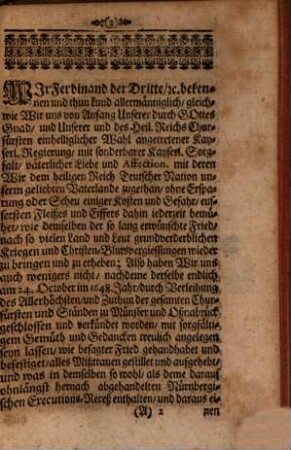 (3)
WIr Ferdinand der Dritte/ ꝛc. beken-
nen und thun kund allermänniglich/ gleich-
wie Wir uns von Anfang Unserer durch GOttes
Gnad/ und Unserer und des Heil. Reichs Chur-
fürsten einhelliglicher Wahl angetrettener Kay-
serl. Regierung/ mit sonderbarer Kayserl. Sorg-
falt/ väterlicher Liebe und Affection, mit deren
Wir dem heiligen Reich Teutscher Nation un-
serm geliebten Vaterlande zugethan/ ohne Erspa-
rung oder Scheu einiger Kosten und Gefahr/ eus-
sersten Fleisses und Eiffers dahin jederzeit bemü-
het/ wie demselben der so lang erwünschte Fried/
nach so vielen Land und Leut grundverderblichen
Kriegen und Christen-Blutsvergiessungen wieder
zu bringen und zu erheben; Also haben Wir uns
auch wenigers nicht/ nachdeme derselbe endlich
am 24. October im 1648. Jahr/ durch Verleihung
des Allerhöchsten/ und Zuthun der gesamten Chur-
fürsten und Ständen zu Münster und Oßnabrück
geschlossen und verkündet worden/ mit sorgfälti-
gem Gemüth und Gedancken treulich angelegen
seyn lassen/ wie besagter Fried gehandhabet und
befestiget/ alles Mißtrauen gestillet und aufgehebt/
und was in demselben so wohl/ als deme darauf
ohnlängst hernach abgehandelten Nürnbergi-
schen Executions-Receß enthalten/ und daraus ei-
(A) 2 nen